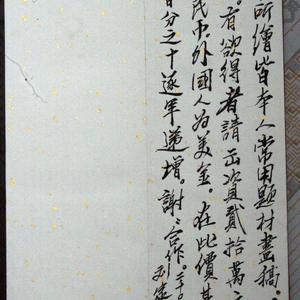 所繪皆本人常用題材畫稿
。有欲得者請出資貳拾萬
民巾。外國人為美金。在此價其
百分之十逐年遞增。謝谢合作。